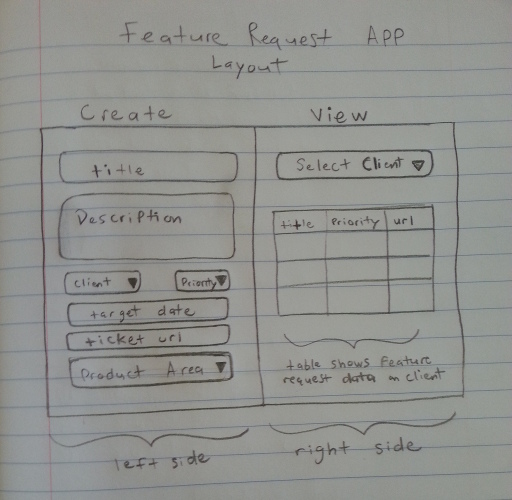 Feature Request APP
Layout
Create
title
Description
Client
Priority
target date
ticket url
Product Area
left side
View
Select Client
title Priority url
table shows feature
request data on client
right side